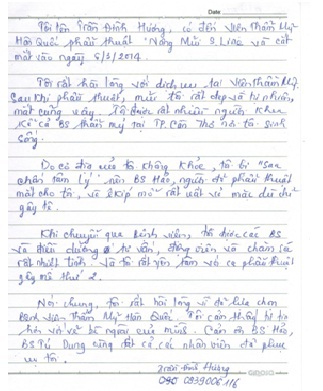 Date
Tôi tên Trần Đình Hương, có đến Viện Thẩm Mỹ
Hàn Quốc phẫu thuật "Nâng Mũi S.Line và cắt
mắt vào ngày 5/3/2014.
Tôi rất hài lòng với dịch vụ tại Viện Thẩm Mỹ.
Sau khi phẫu thuật, mũi tôi rất đẹp và tự nhiên,
mắt cũng vậy. Tôi được rất nhiều người khen
kể cả BS thẩm mỹ tại TP. Cần Thơ nơi tôi sinh
sống.
Do cơ địa của tôi không khỏe, tôi bị "
chấn tâm lý" nên BS Hảo, người đã phẫu thuật
mắt cho tôi, và êkíp mổ rất vất vả mặc dù chỉ
gây tê.
Khi chuyển qua bệnh viện, tôi được các BS
và điều dưỡng tư vấn, động viên và chăm sóc
rất nhiệt tình. Và tôi rất yên tâm với ca phẫu thuật
gây mê thứ 2.
Nói chung, tôi rất hài lòng vì đã lựa chọn
Bệnh viện Thẩm Mỹ Hàn Quốc. Tôi cảm thấy tự tin
hơn với vẻ bề ngoài của mình. Cảm ơn BS Hảo,
BS Dung cùng tất cả các nhân viên đã phục
vụ tôi.
Trần Đình Hương
090 0939006116